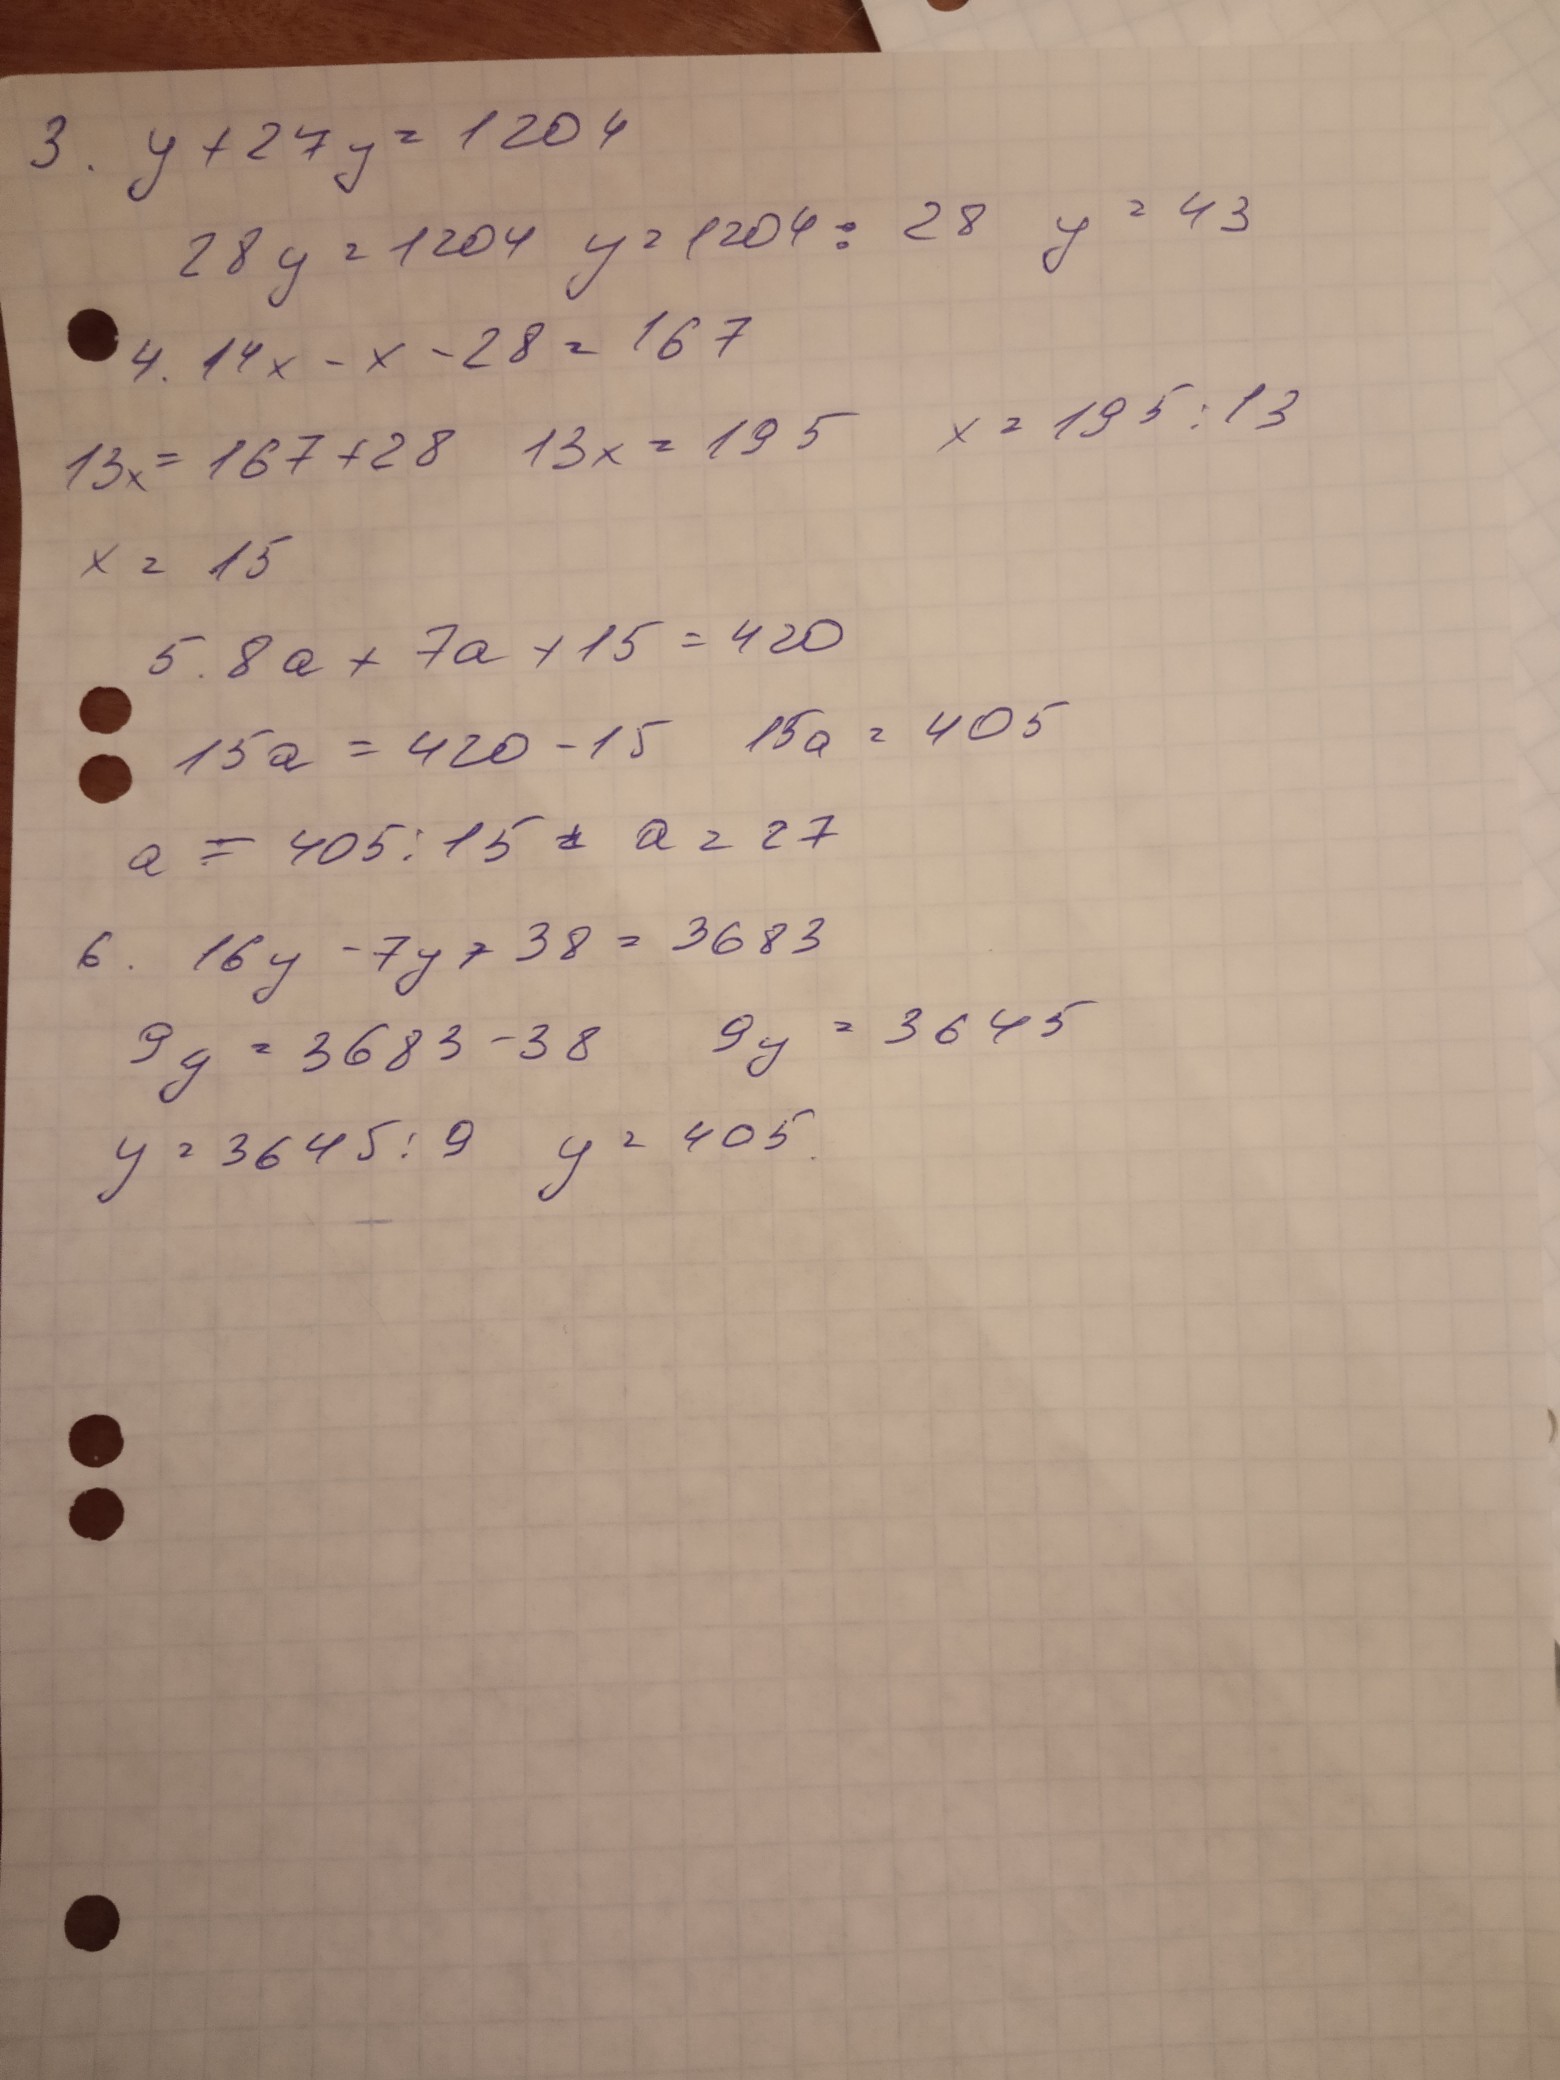 3. y + 27y = 1204
28y = 1204 y = 1204 : 28 y = 43
4. 14x - x - 28 = 167
13x = 167 + 28 13x = 195 x = 195 : 13
x = 15
5. 8a + 7a + 15 = 420
15a = 420 - 15 15a = 405
a = 405 : 15 a = 27
6. 16y - 7y + 38 = 3683
9y = 3683 - 38 9y = 3645
y = 3645 : 9 y = 405.